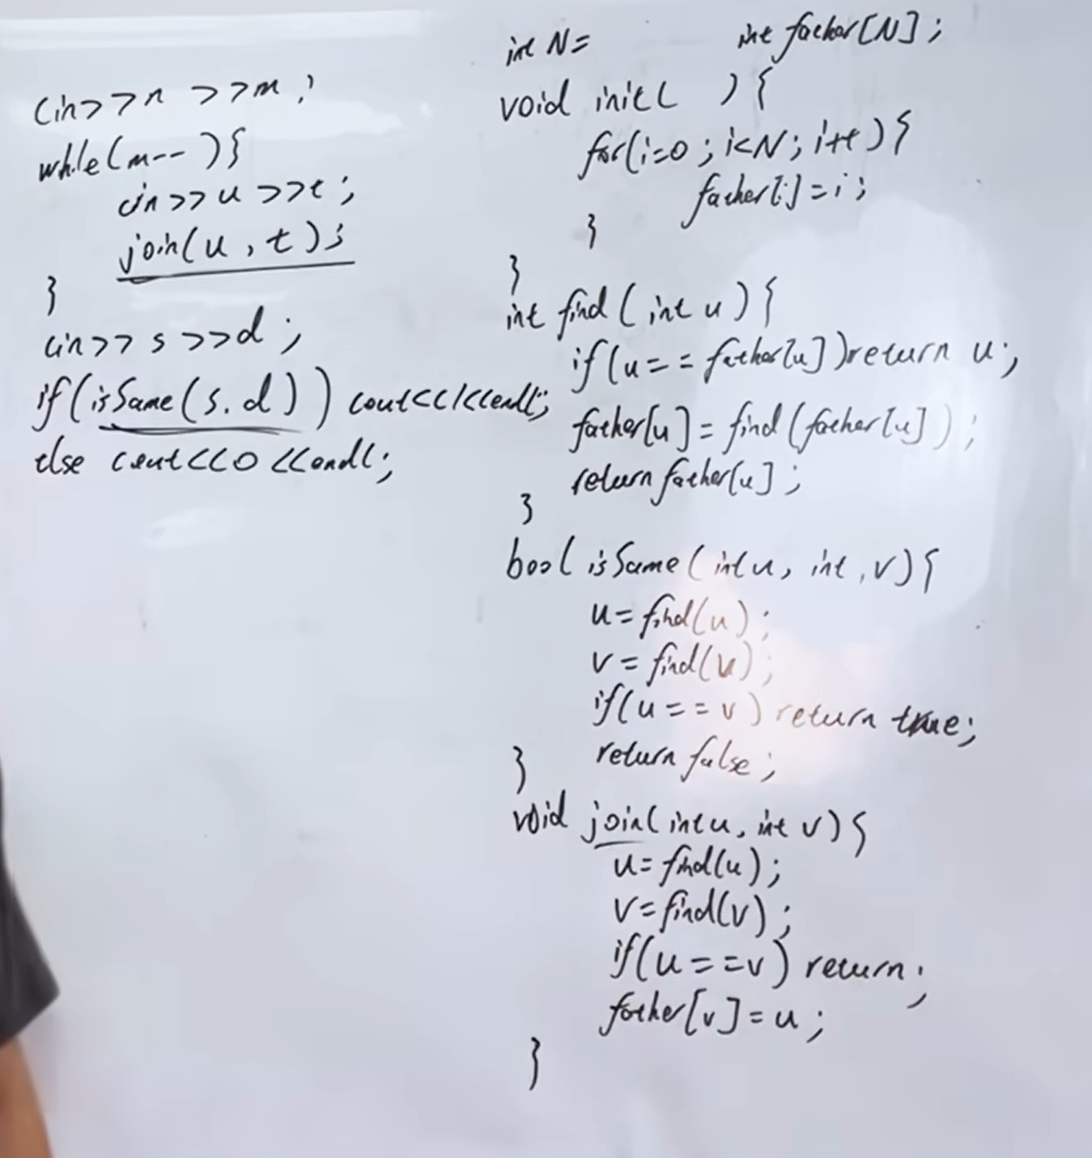 cin>>n >>m;
while(m--){
cin>>u>>t;
join(u,t);
}
cin>>s>>d;
if(isSame(s.d)) cout<<1<<endl;
else cout<<0<<endl;
int N= int father[N];
void init( ){
for(i=0;i<N;i++){
father[i]=i;
}
}
int find(int u){
if(u==father[u])return u;
father[u]=find(father[u]);
return father[u];
}
bool isSame(int u, int,v){
u=find(u);
v=find(u);
if(u==v) return true;
return false;
}
void join(int u, int v){
u=find(u);
v=find(v);
if(u==v) return;
father[v]=u;
}